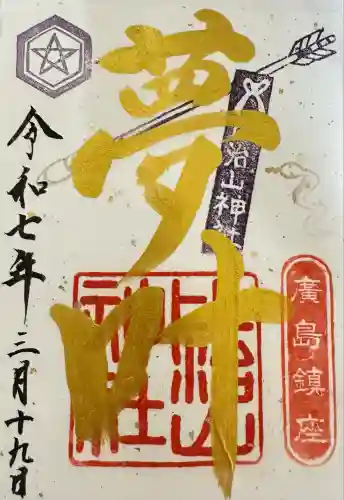 廣島鎮座
夢叶
比治山神社
治山神社
令和七年三月十九日